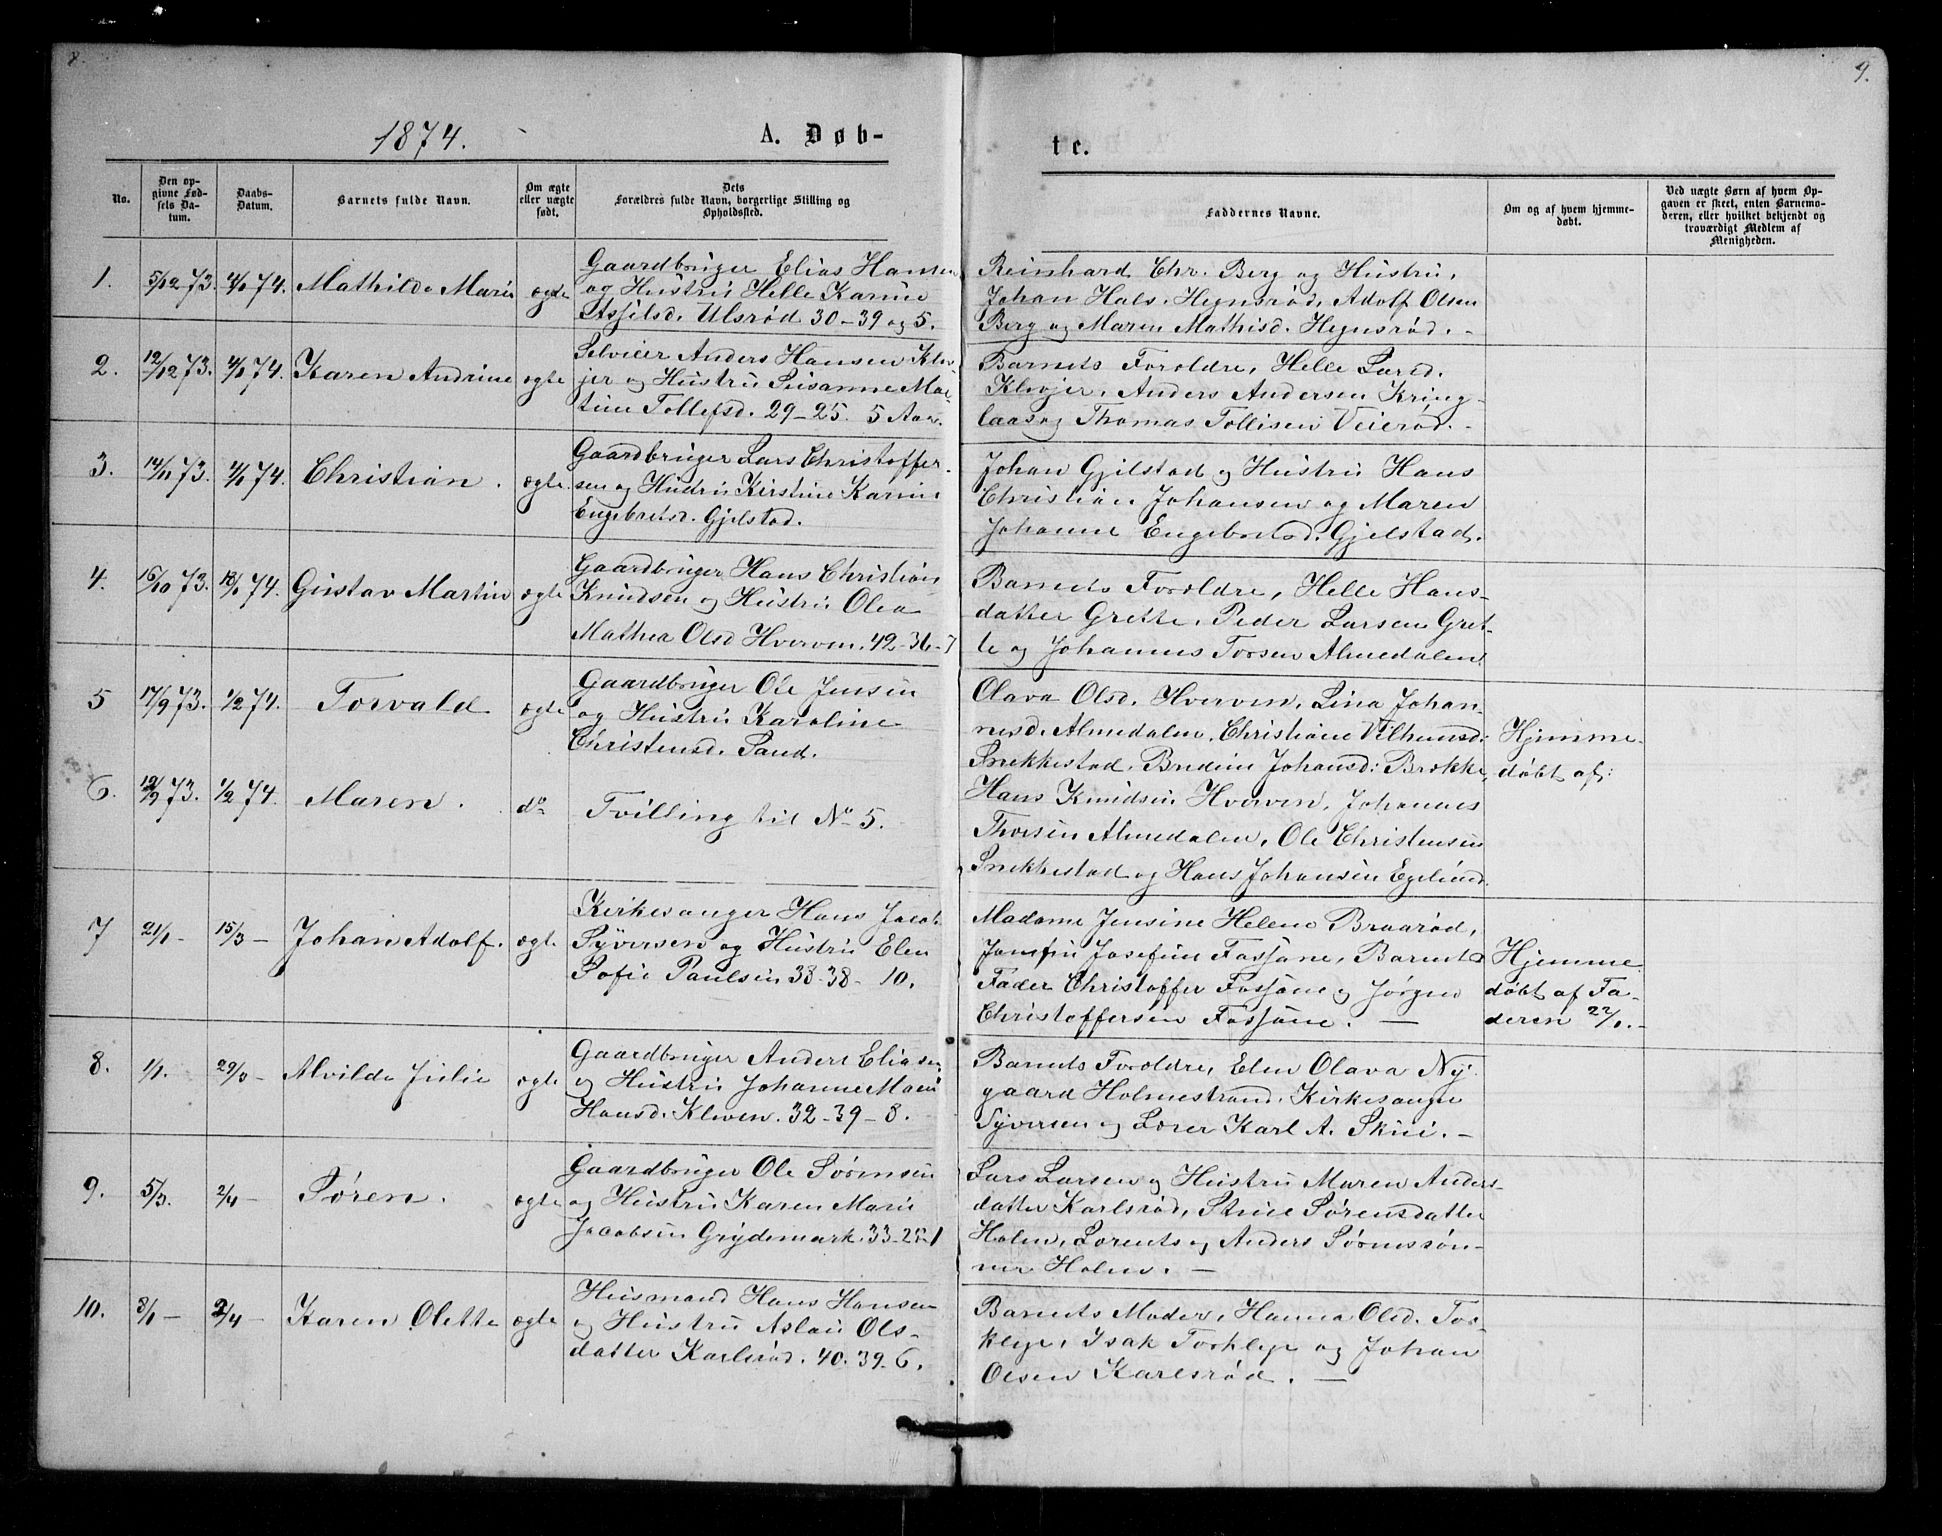 8.
1874.
A. Døb-
No.
Den op-
givne Fød-
sels Da-
tum.
Daabs-
Datum.
Barnets fulde Navn.
Om ægte
eller uægte
født.
Dets
Forældres fulde Navn, borgerlige Stilling og
Opholdssted.
1.
5/12 73.
4/1 74.
Mathilde Marie
ægte
Gaardbruger Elias Hansen
og Hustru Helle Karine
Ulsrød 30-39 og 5.
2.
12/12 73.
4/1 74.
Karen Andrine
ægte
Selveier Anders Hansen Klev-
jer og Hustru Susanne Mar-
tine Tollefsd. 29-25. 5 Aar.
3.
14/11 73.
4/1 74.
Christian.
ægte
Gaardbruger Lars Christoffer-
sen og Hustru Kirstine Karine
Engebretsd. Gjelstad.
4.
16/10 73.
18/1 74.
Gustav Martin
ægte
Gaardbruger Hans Christian
Knudsen og Hustru Olea
Mathea Olsd Hverven. 42-36-7
5
17/9 73.
1/2 74.
Torvald
ægte
Gaardbruger Ole Jensen
og Hustru Karoline
Christensd. Sand.
6.
73.
1/2 74.
Maren.
do
Tvilling til No 5.
7
21/1-
15/3-
Johan Adolf.
ægte
Kirkesanger Hans Jacob
Syversen og Hustru Elen
Sofie Paulsen 38-38- 10.
8.
1/1.
29/3-
Alvilde Julie
ægte
Gaardbruger Anders Eliasen
og Hustru Johanne Marie
Hansd. Kleven. 32-39-8.
9.
5/3.
2/4-
Søren.
ægte
Gaardbruger Ole Sørensen
og Hustru Karen Marie
Jacobsen Grydemark. 33-25-1
10.
8/1-
2/4-
Karen Olette
ægte
Husmand Hans Hansen
og Hustru Aslau Ols-
datter Karlsrød. 40. 39-6.
9.
te.
Faddernes Navne.
Om og af hvem hjemme-
døbt.
Ved uægte Børn af hvem Op-
gaven er skeet, enten Barnemo-
deren, eller hvilket bekjendt og
troværdigt Medlem af
Menigheden.
Reinhard Chr. Berg og Hustru,
Johan Hals. Hegnsrød, Adolf Olsen
Berg og Maren Mathisd. Hegnsrød.-
Barnets Forældre, Helle Larsd.
Klevjer, Anders Andersen Kring-
laas og Thomas Tollisen Veierød.-
Johan Gjelstad og Hustru Hans
Christian Johansen og Maren
Johanne Engebretsd. Gjelstad.
Barnets Forældre, Helle Hans-
datter Grette. Peder Larsen Gret-
te og Johannes Torsen Almedalen
Olava Olsd. Hverven, Lina Johan-
nesd. Almedalen, Christiane Vilhemsd:
Snekkestad. Johansd: Brække,
Hans Knudsen Hverven, Johannes
Thorsen Almedalen, Ole Christensen
Snekkestad og Hans Johansen Egelund.
Hjemme-
døbt af:
Madame Jensine Helene Braarød,
Jomfru Josefine Fossane, Barnets
Fader Christoffer Fossane og Jørgen
Christoffersen Fossane.-
Hjemme
døbt af Fa-
deren 22/1.-
Barnets Forældre, Elen Olava Ny-
gaard Holmestrand. Kirkesanger
Syversen og Lærer Karl A. Skui.-
Lars Larsen og Hustru Maren Anders-
datter Karlsrød, Sørensdatter
Holm, Lorents og Anders Sørenssøn-
ner Holm.-
Barnets Moder, Hanna Olsd. Tor-
kleje, Isak Torkleje og Johan
Olsen Karlsrød.-